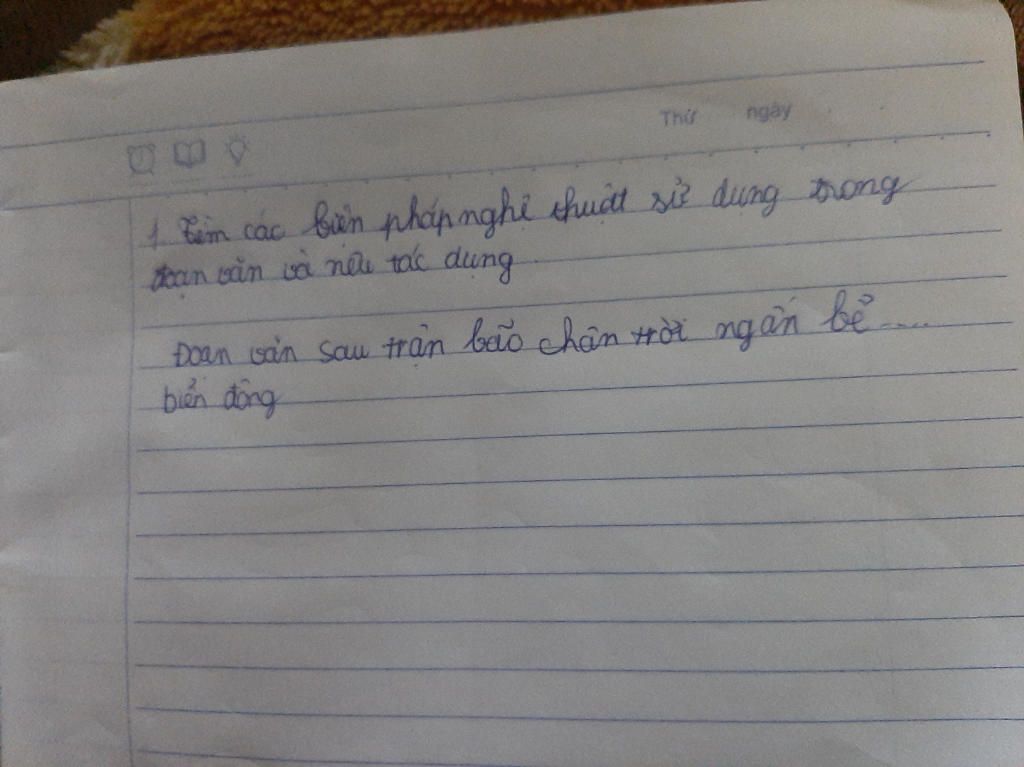 Thứ ngày
1. Tìm các biện pháp nghệ thuật sử dụng trong
đoạn văn và nêu tác dụng
Đoạn văn sau trận bão chân trời ngấn bể.....
biển đông